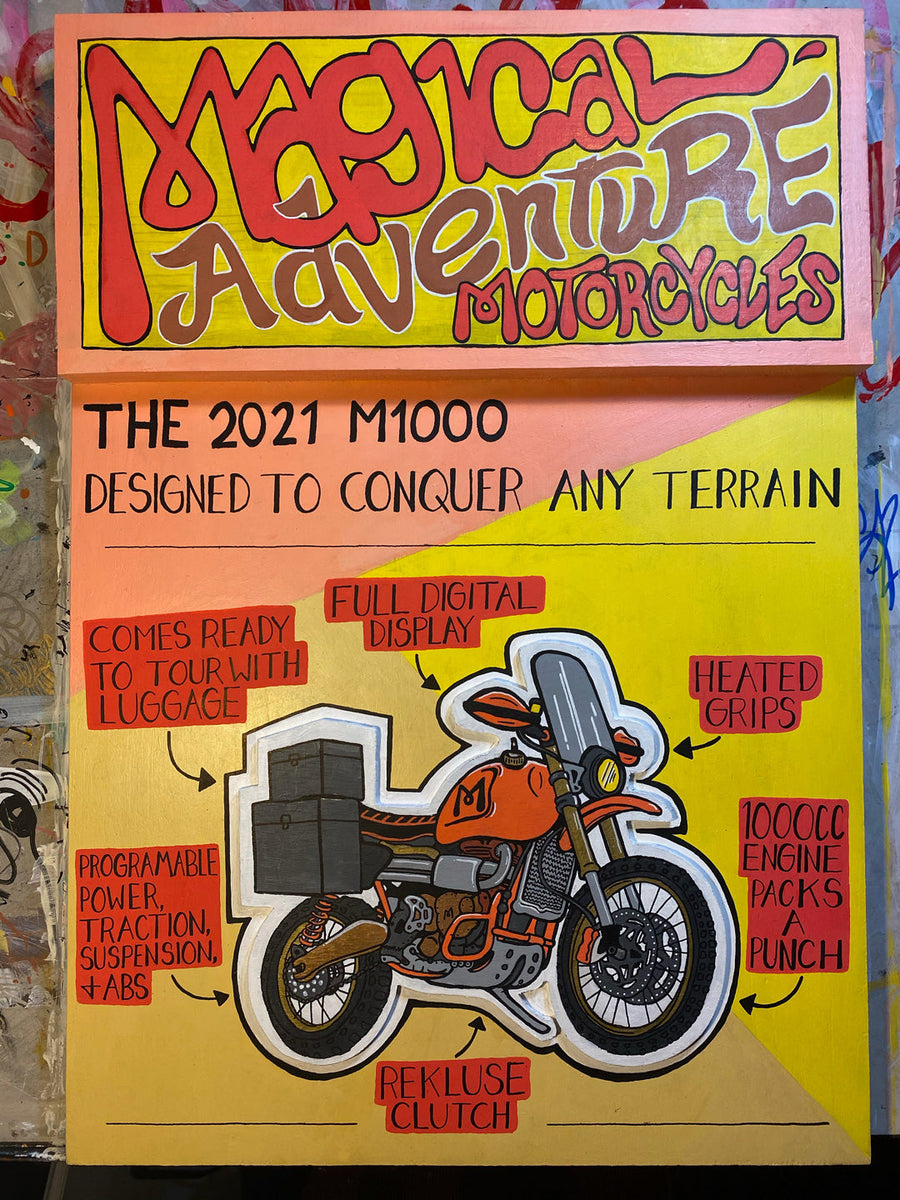 Magical
Adventure
MOTORCYCLES
THE 2021 M1000
DESIGNED TO CONQUER ANY TERRAIN
FULL DIGITAL
DISPLAY
COMES READY
TO TOUR WITH
LUGGAGE
HEATED
GRIPS
M
1000CC
ENGINE
PACKS
A
PUNCH
PROGRAMABLE
POWER,
TRACTION,
SUSPENSION,
+ABS
M
REKLUSE
CLUTCH